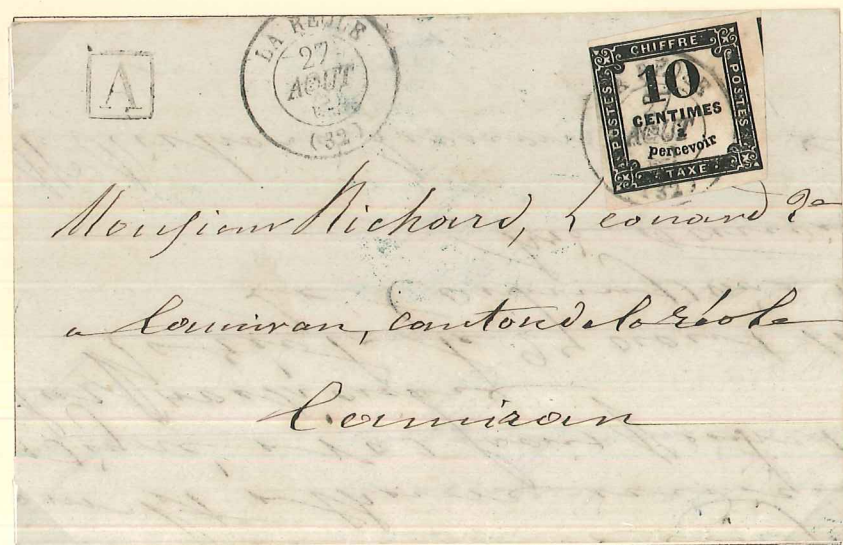 A
LA RÉOLE
27
AOUT
(32)
CHIFFRE
POSTES
10
CENTIMES
à
percevoir
POSTES
TAXE
AOUT
(32)
Monsieur Richard, Leonard
a Camiran, canton de la réole
Camiran